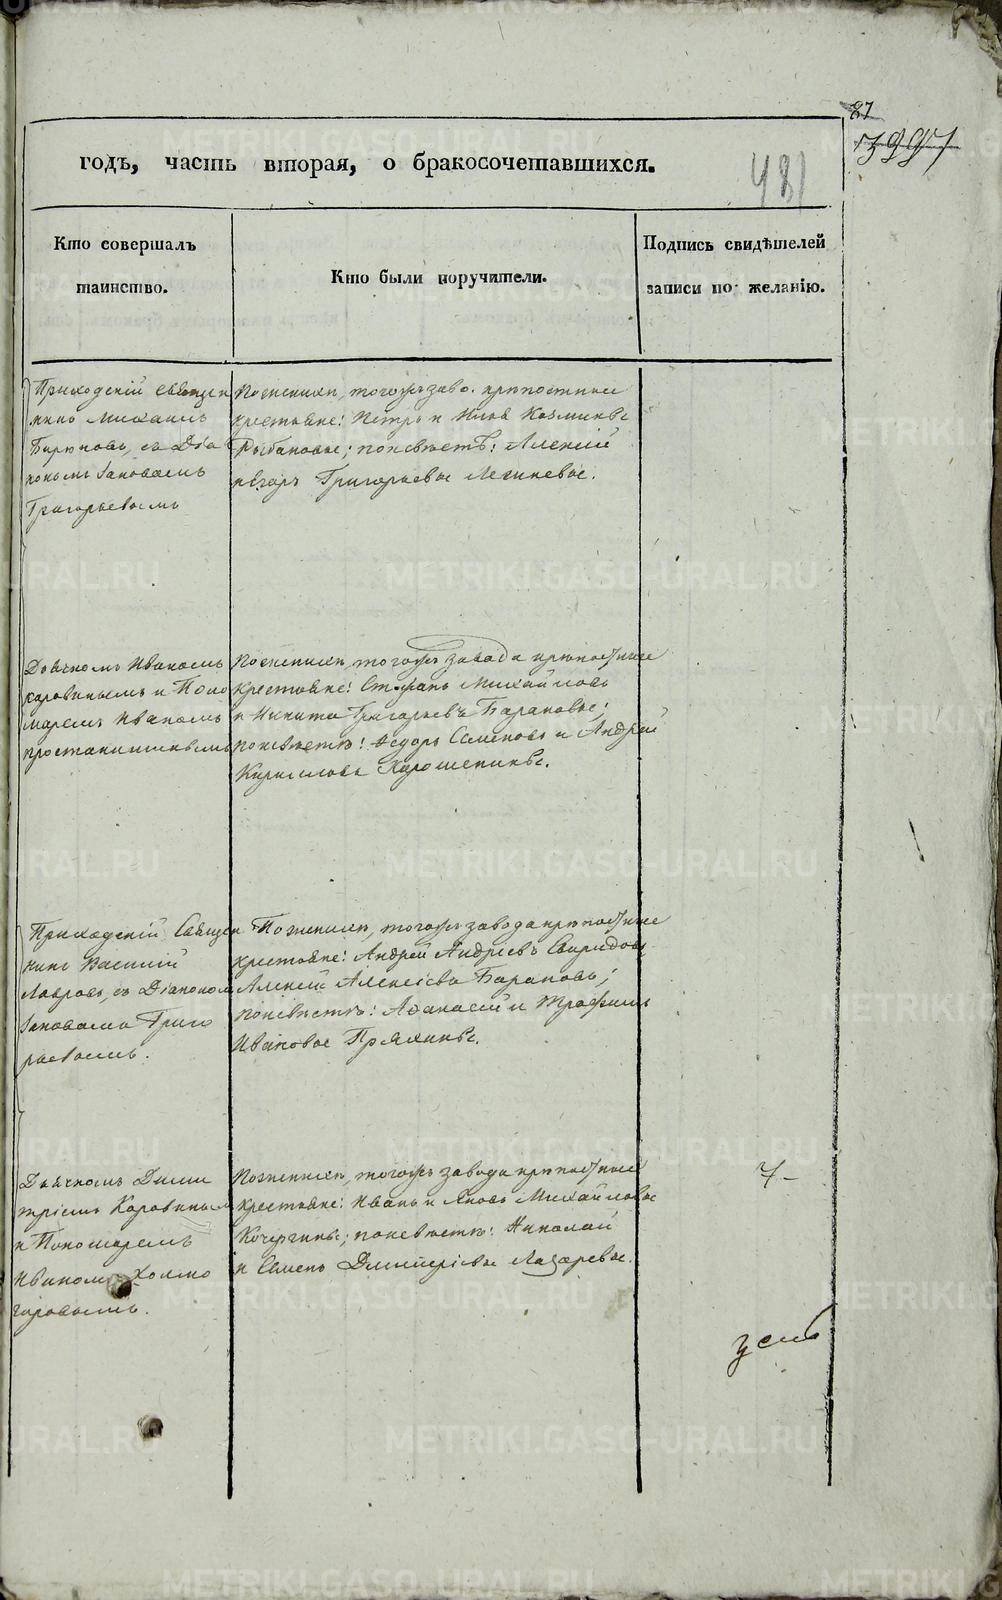 87
481
годъ, часть вторая, о бракосочетавшихся.
Кто совершалъ
таинство.
Кто были поручители.
Подпись свидѣтелей
записи по желанію.
Приходскій Священ
никъ Михаилъ
Бирюковъ, съ Діа
кономъ Іаковомъ
Григорьевымъ
По женихѣ, тогожъ заво. крѣпостные
крестьяне: Петръ и Илья Козмины
Рыбаковы; по невѣстѣ: Алексій
и Егоръ Григорьевы
Дьячкомъ Иваномъ
Каровинымъ и Поно
маремъ Иваномъ
По женихѣ, тогожъ завода крѣпостные
крестьяне: Стефанъ Михайловъ
и Никита Григорьевъ Барановы;
по невѣстѣ: Федоръ Семеновъ и Андрей
Кириловъ
Приходскій Священ
никъ Василій
Лавровъ, съ Діакономъ
Іаковомъ Григо
рьевымъ.
По женихѣ, тогожъ завода крѣпостные
крестьяне: Андрей Андріевъ Свиридовъ,
Алексій Алексіевъ Барановъ;
по невѣстѣ: Афанасій и Трофимъ
Ивановы Пряхины.
Дьячкомъ Дими
тріемъ Каровинымъ
и Пономаремъ
Иваномъ Холмо
горовымъ.
По женихѣ, тогожъ завода крѣпостные
крестьяне: Иванъ и Яковъ Михайловы
Кочергины; по невѣстѣ: Николай
и Семенъ Димитріевы Лазаревы.
METRIKI.GASO-URAL.RU